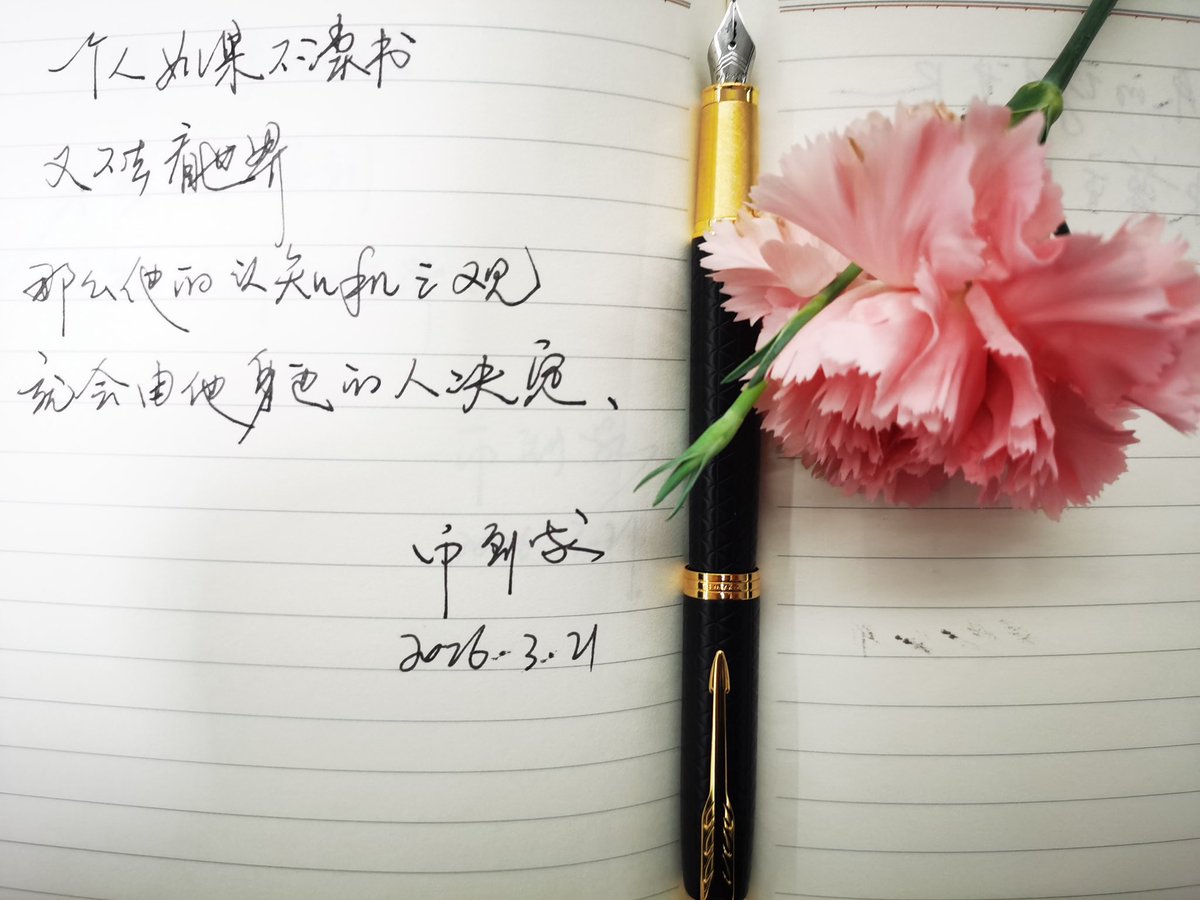 一个人如果不读书
又不去看世界
那么他的认知和三观
就会由他身边的人决定、
2026.3.21